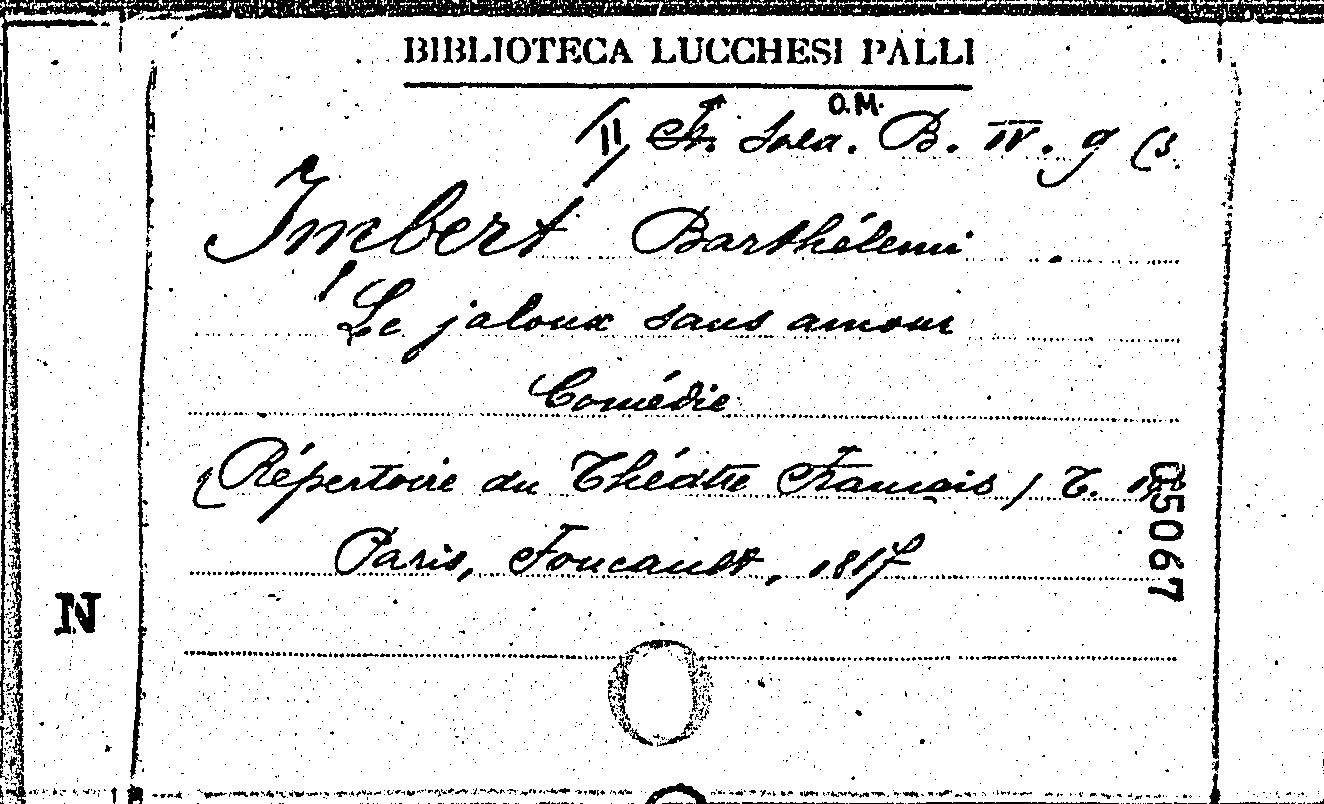 BIBLIOTECA LUCCHESI PALLI
O.M.
II B. IV. 9 (3.
Imbert Barthélemi.
Le jaloux sans amour
Comédie
(Répertoire du Théâtre Français) T.
Paris, Foucault, 1817
05067
N